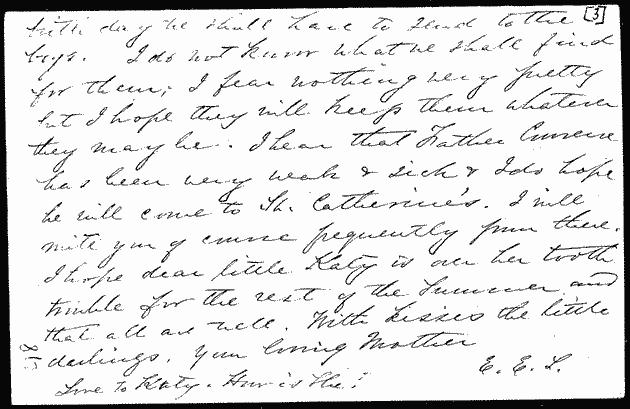 [3]
birth day we shall have to send to the
boys. I do not know what we shall find
for them; I fear nothing very pretty
but I hope they will keep them whatever
they may be. I hear that Father
has been very weak & sick & I do hope
he will come to St. Catherine's. I will
write you of course frequently from there.
I hope dear little Katy is over her tooth
trouble for the rest of the Summer and
that all are well. With kisses the little
darlings. Your loving Mother
E. E. L.
Love to Katy. How is She?